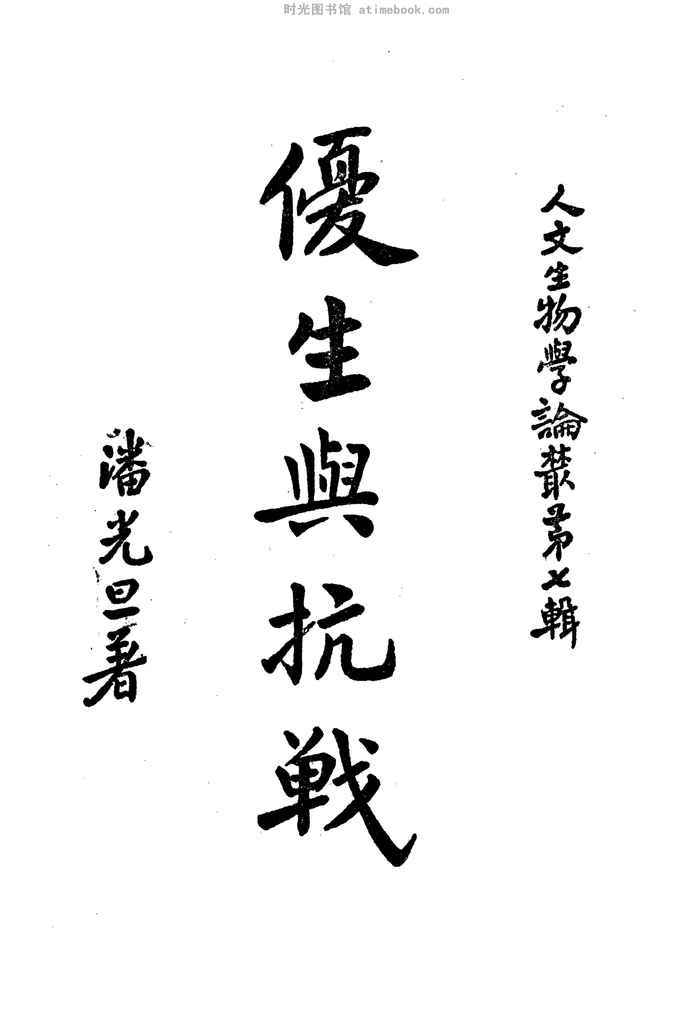 时光图书馆 atimebook.com
人文生物學論叢第七輯
優生與抗戰
潘光旦著